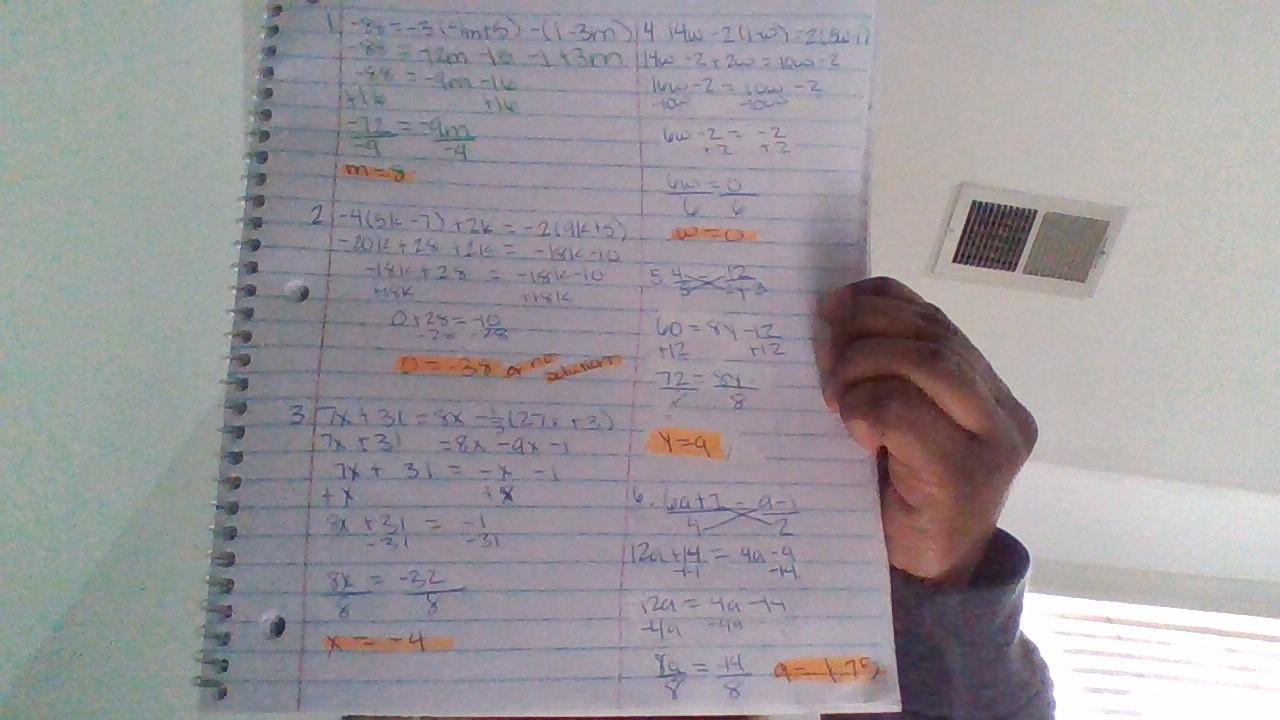 1. -88 = -3(-4m+5) - (1-3m)
-88 = -12m -15 -1 +3m
-88 = -9m -16
+16 +16
-72 = -9m
-9 -9
m = 8
2 -4(5k-7) +2k = -2(9k+5)
-20k+28 +2k = -18k-10
-18k+28 = -18k-10
+18k +18k
0+28 = -10
-28 -28
0 = -38 or no solution
3 7x+31 = 8x - 1/3(27x+3)
7x+31 = 8x -9x -1
7x + 31 = -x -1
+x +x
8x +31 = -1
-31 -31
8x = -32
8 8
x = -4
4 14w -2(1-w) = 2(5w-1)
14w -2 +2w = 10w -2
16w -2 = 10w -2
-10w -10w
6w -2 = -2
+2 +2
6w = 0
6 6
w = 0
5. 4 = 12
5 y-3
60 = 8y -12
+12 +12
72 = 8y
8
y = 9
6. 6a+7 = a-1
4 2
12a+14 = 4a-4
-14 -14
12a = 4a -14
-4a -4a
8a = -14
8 8
a = -1.75